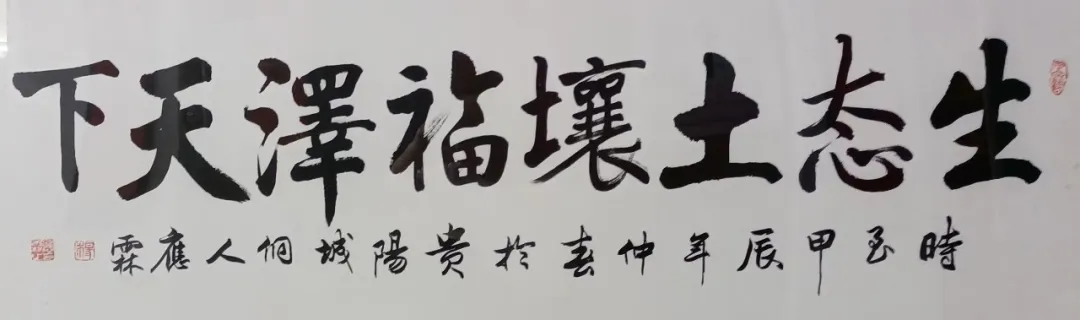 生态土壤福澤天下
時至甲辰年仲春於贵陽城侗人應霖